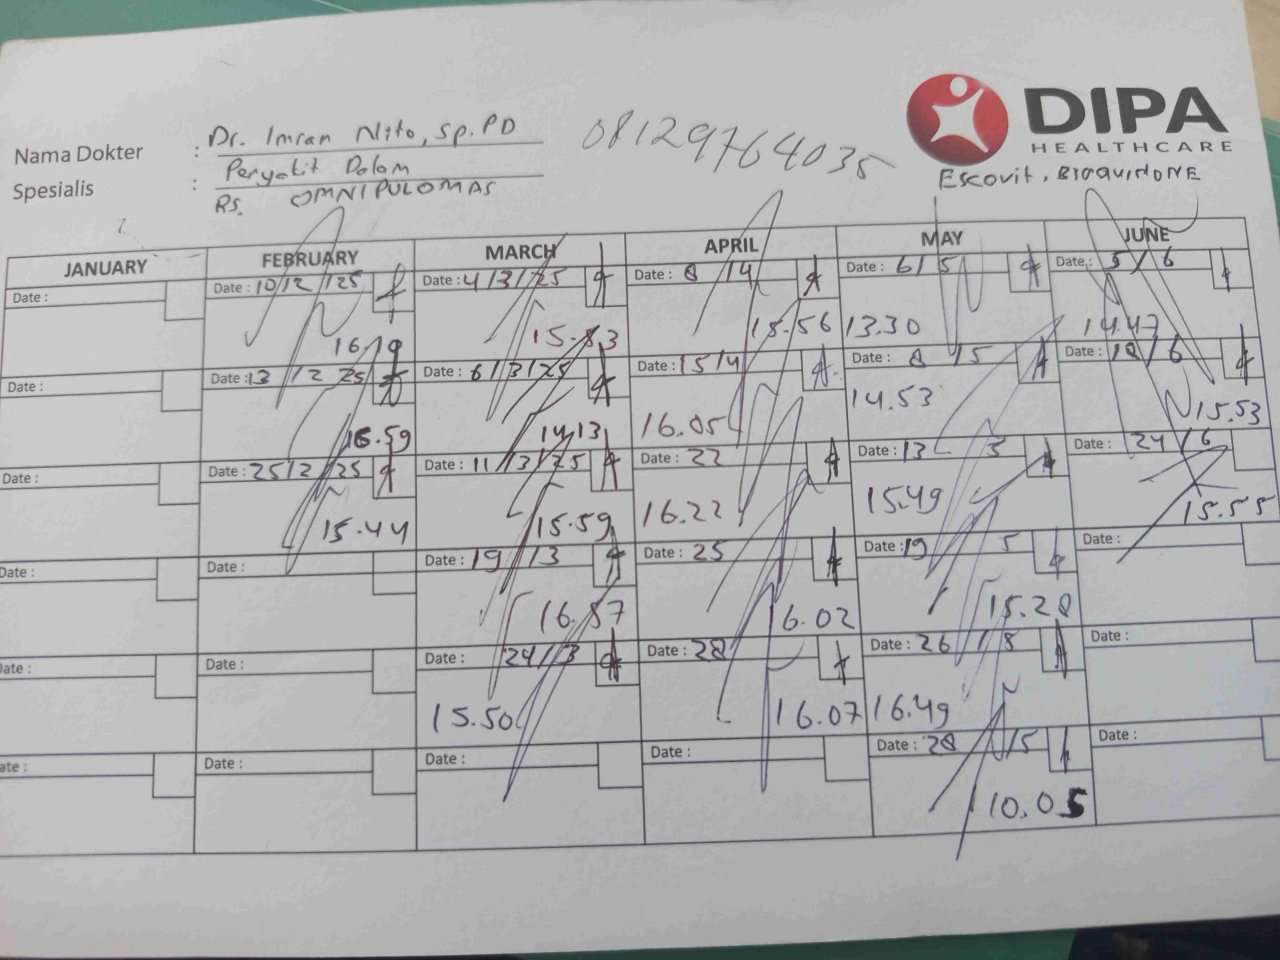 DIPA
HEALTHCARE
Nama Dokter : Dr. Imran Nito, Sp.PD
08129764035
Spesialis : Penyakit Dalam
RS. OMNI PULOMAS
Escovit,
JANUARY FEBRUARY MARCH APRIL MAY JUNE
Date : Date : 10/2/25 Date : 4/3/25 Date : 8/4 Date : 6/5 Date : 3/6
16.19 15.53 15.56 13.30 14.47
Date : Date : 13/2 25 Date : 6/3/25 Date : 15/4 Date : 8/5 Date : 10/6
16.59 14.13 16.05 14.53 15.53
Date : Date : 25/2/25 Date : 11/3/25 Date : 22 Date : 13 5 Date : 24/6
15.44 15.59 16.22 15.49 15.55
Date : Date : Date : 19/3 Date : 25 Date : 19 5 Date :
16.57 16.02 15.28
Date : Date : Date : 24/3 Date : 28 Date : 26/5 Date :
15.50 16.07 16.49
Date : Date : Date : Date : Date : 28/5 Date :
10.05